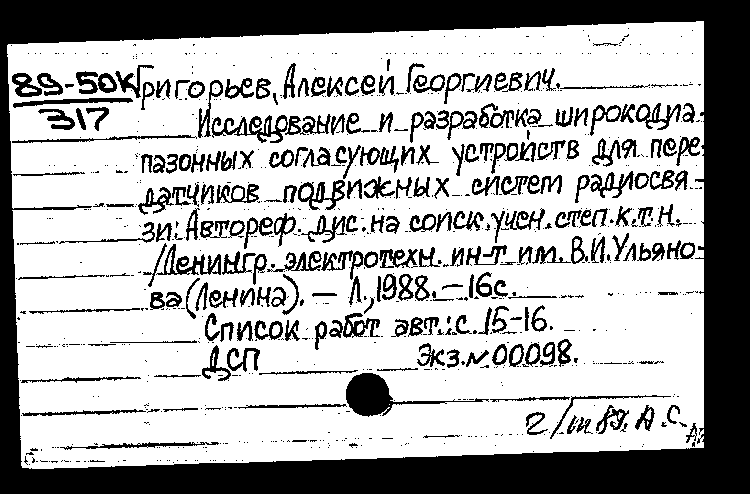 89-50К Григорьев, Алексей Георгиевич.
317
Исследование и разработка широкодиа-
пазонных согласующих устройств для пере-
датчиков подвижных систем радиосвя-
зи: Автореф. дис. на соиск. учен. степ. к.т.н.
/Ленингр. электротехн. ин-т им. В.И.Ульяно-
ва (Ленина). — Л., 1988. — 16с.
Список работ авт.: с. 15-16.
ДСП Экз.№00098.
89. А.С.